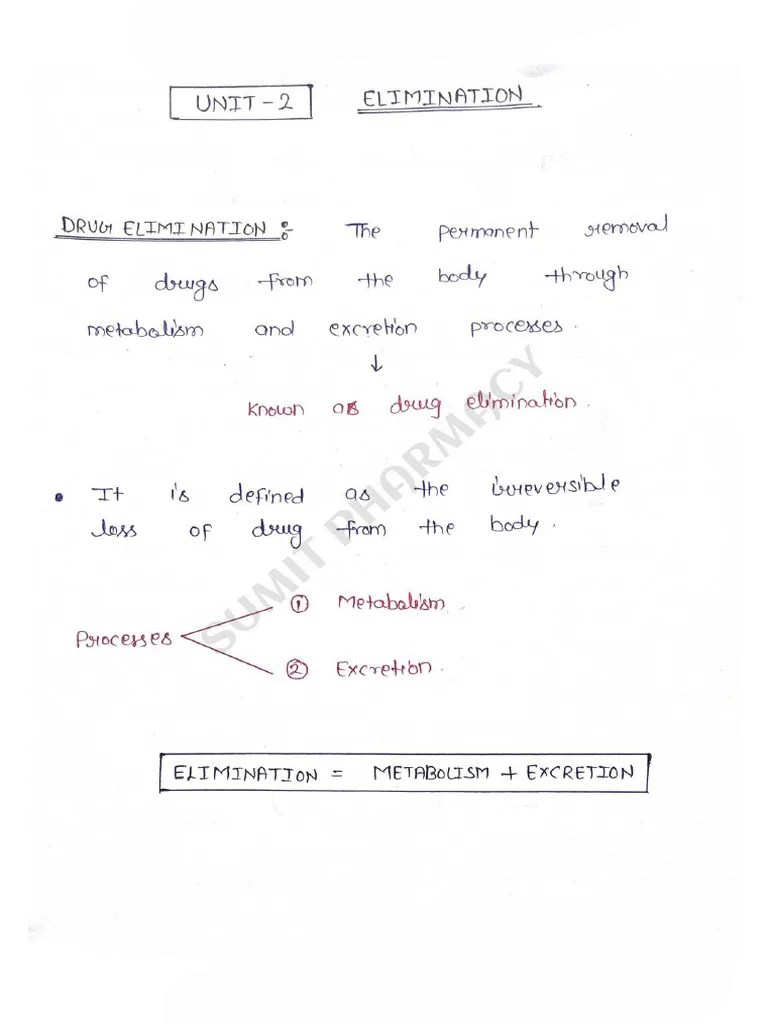 UNIT - 2 ELIMINATION
DRUG ELIMINATION :- The permanent removal
of drugs from the body through
metabolism and excretion processes.
↓
Known as drug elimination.
• It is defined as the irreversible
loss of drug from the body.
Processes
① Metabolism
② Excretion.
ELIMINATION = METABOLISM + EXCRETION
SUMIT PHARMACY